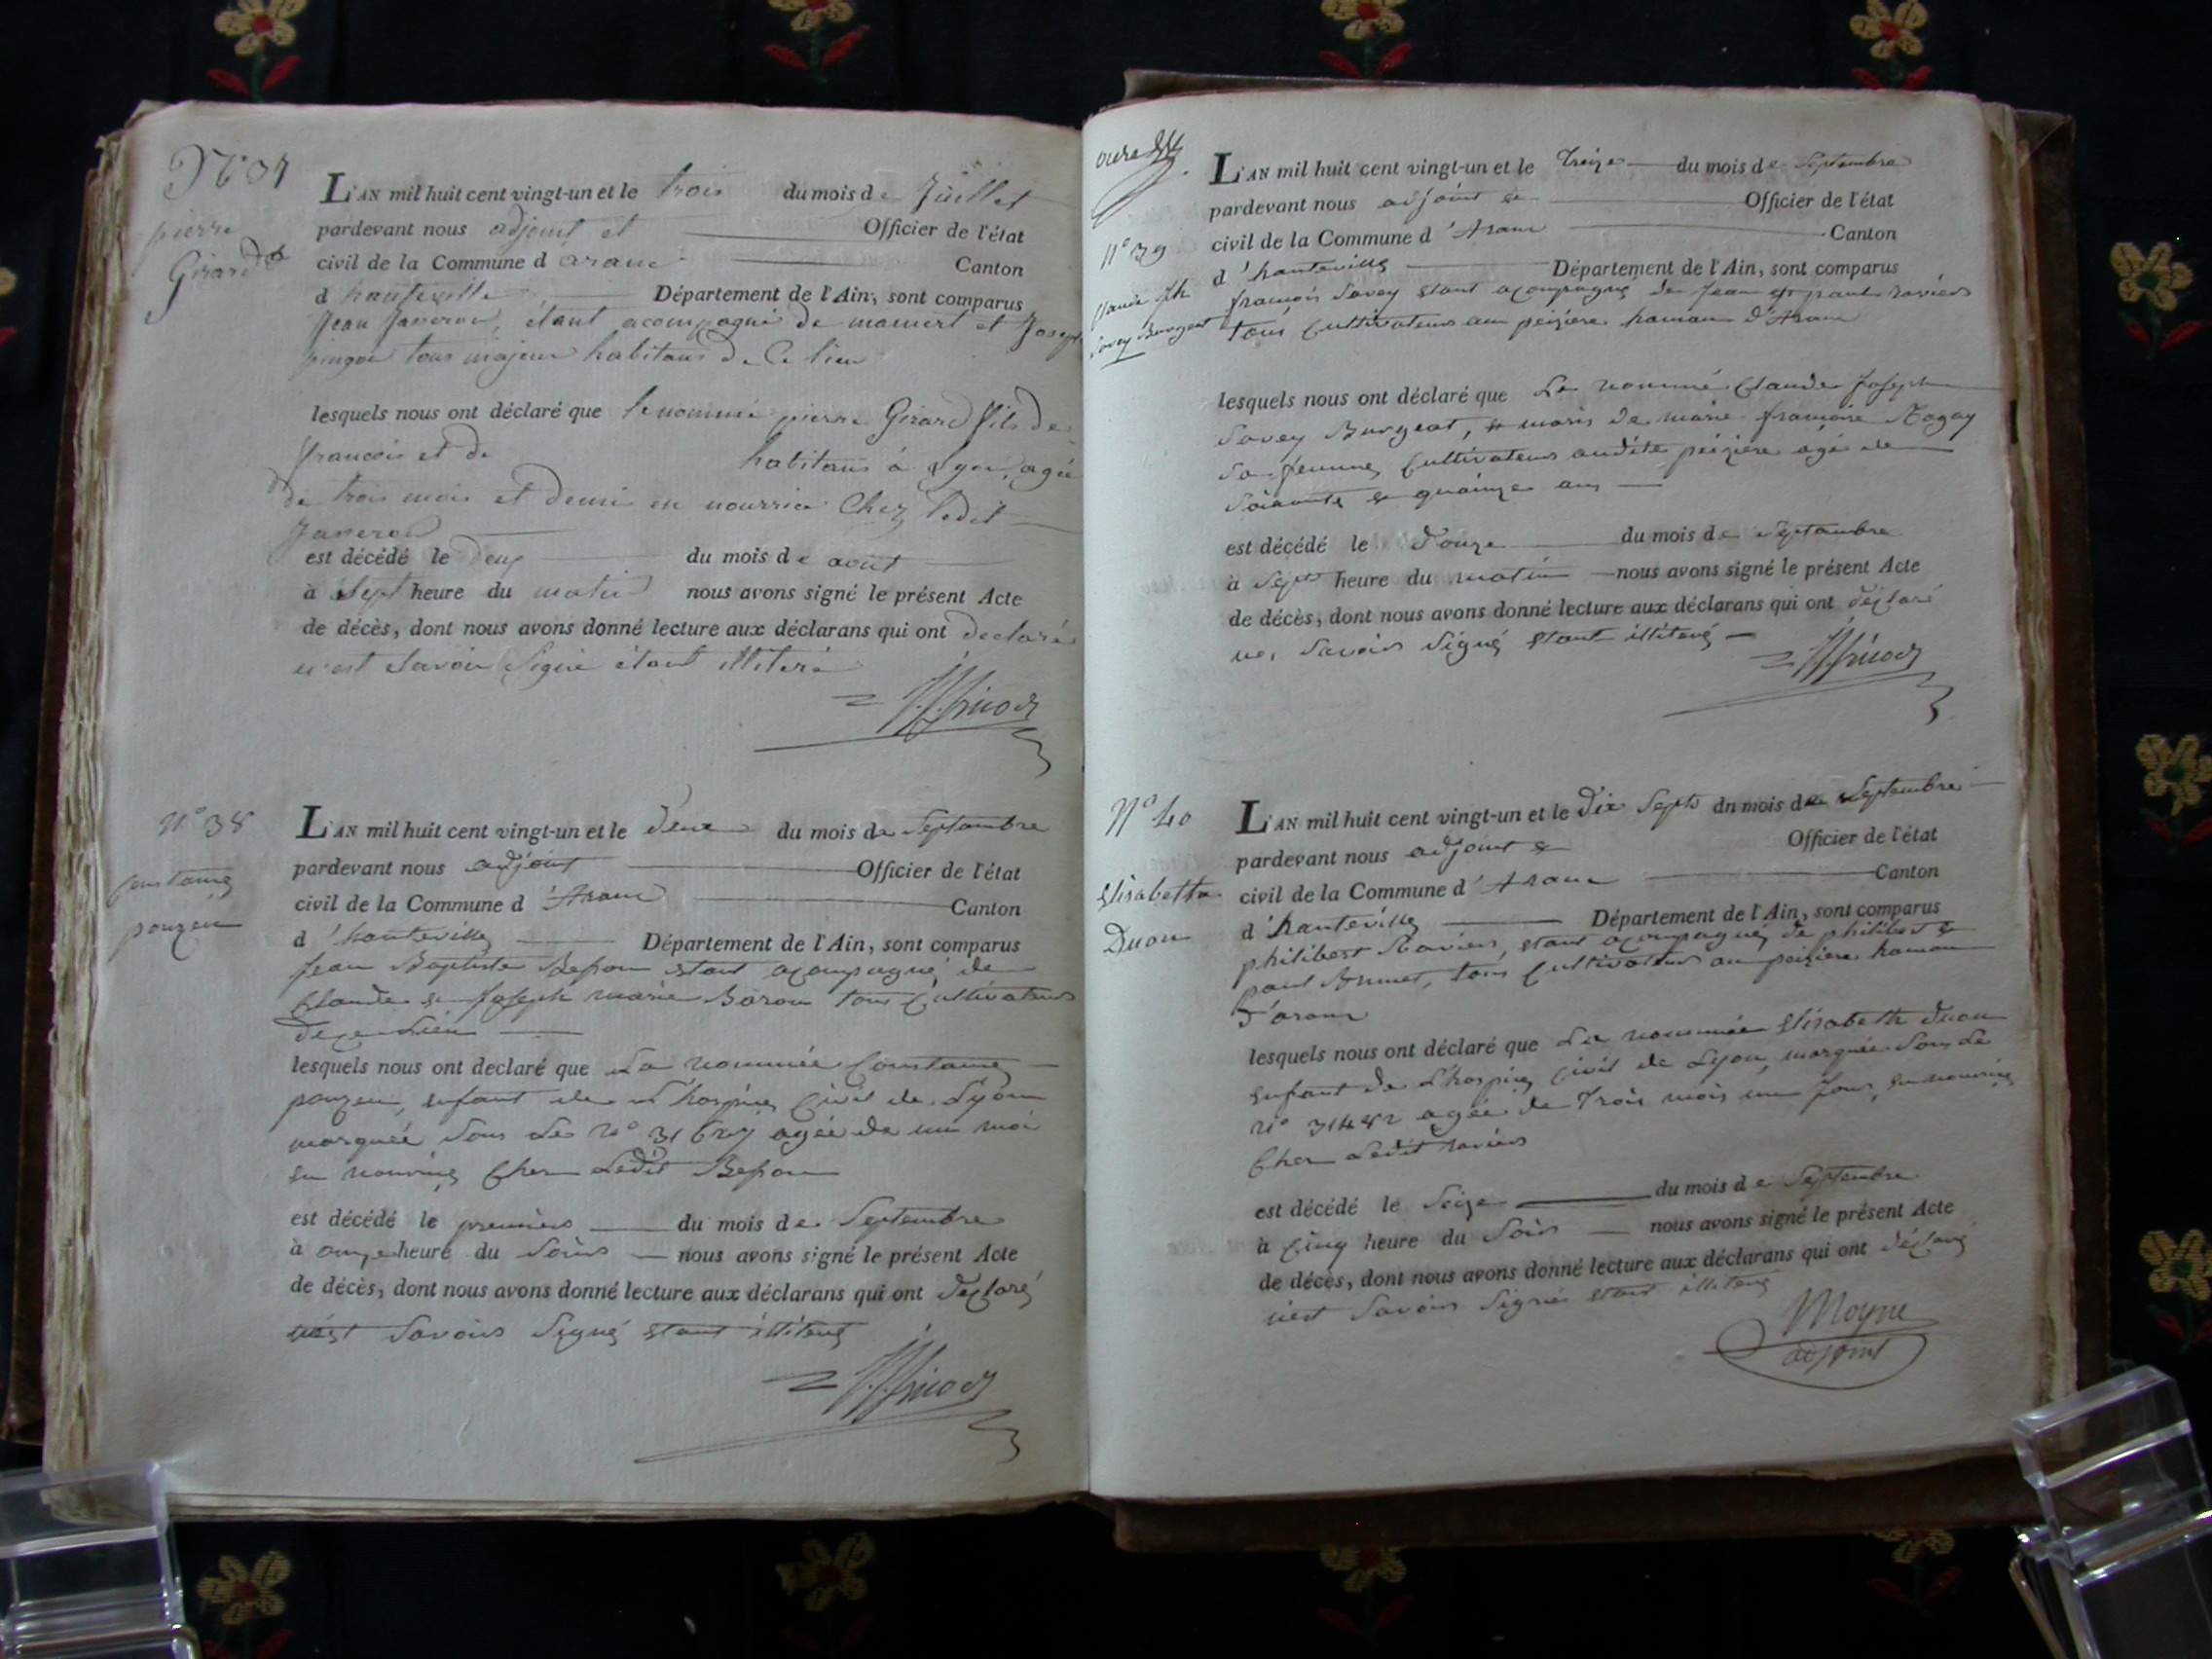 N° 37
pierre
Girard
L'AN mil huit cent vingt-un et le trois du mois de Juillet
pardevant nous adjoint et Officier de l'état
civil de la Commune d aranc Canton
d hauteville Département de l'Ain, sont comparus
Jean Javeron, étant acompagné de mamert et Joseph
pingon tous majeur habitans de Ce lieu
lesquels nous ont déclaré que le nommé pierre Girard fils de
francois et de habitans à Lyon, agé
de trois mois et demi en nourrice Chez ledit
Javeron
est décédé le deux du mois de août
à Sept heure du matin nous avons signé le présent Acte
de décès, dont nous avons donné lecture aux déclarans qui ont declaré
n'est Savoir Signé étant illiteré
N° 38
Constance
pouzeu
L'AN mil huit cent vingt-un et le deux du mois de Septembre
pardevant nous adjoint Officier de l'état
civil de la Commune d 'Aranc Canton
d 'hauteville Département de l'Ain, sont comparus
Jean Baptiste Besson etant acompagné de
Claude et Joseph marie Baron tous Cultivateurs
de ce Lieu
lesquels nous ont declaré que La nommée Constance
pouzeu, enfant de L'hospice Civil de Lyon
marquée Sous Le N° agée de un moi
en nourrice Cher Ledit Besson
est décédé le premiers du mois de Septembre
à onze heure du Soirs nous avons signé le présent Acte
de décès, dont nous avons donné lecture aux déclarans qui ont déclaré
n'est Savoirs Signé etant illiteré
N° 39
Claude Jh
Savey Burgeat
L'AN mil huit cent vingt-un et le Treize du mois de Septembre
pardevant nous adjoint et Officier de l'état
civil de la Commune d 'Aranc Canton
d 'hauteville Département de l'Ain, sont comparus
françois Savey etant acompagné de Jean et paul raviers
tous Cultivateurs au peiziere hamau d'Aranc
lesquels nous ont déclaré que Le nommé Claude Joseph
Savey Burgeat, maris de marie françoise
Sa femme, Cultivateurs audite peiziere agé de
Soixante et quainze ans
est décédé le Douze du mois de Septembre
à Sept heure du matin nous avons signé le présent Acte
de décès, dont nous avons donné lecture aux déclarans qui ont déclaré
ne Savoirs Signé etant illiteré
N° 40
Elisabetta
Duon
L'AN mil huit cent vingt-un et le Dix Sept du mois de Septembre
pardevant nous adjoint et Officier de l'état
civil de la Commune d 'Aranc Canton
d 'hauteville Département de l'Ain, sont comparus
philibert Raviers, etant acompagné de philibert et
paul Brunet, tous Cultivateurs au peiziere hamau
d'aranc
lesquels nous ont déclaré que La nommée Elisabeth Duon
enfant de L'hospice Civil de Lyon, marquée Sous Le
N° 31452 agée de Trois mois un Jour, en nourrice
Cher Ledit raviers
est décédé le Seize du mois de Septembre
à Cinq heure du Soirs nous avons signé le présent Acte
de décès, dont nous avons donné lecture aux déclarans qui ont déclaré
n'est Savoirs Signé etant illiteré
Moyne
adjoint